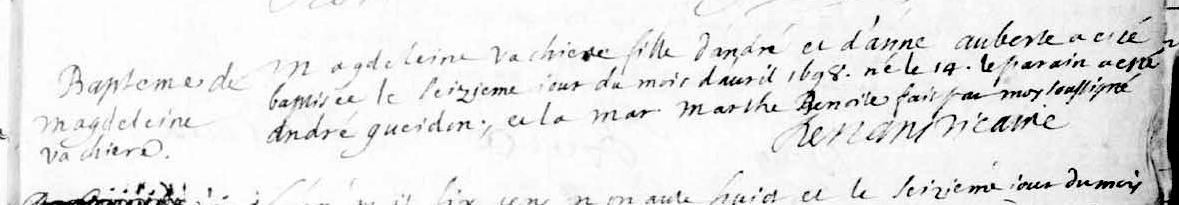 Bapteme de
magdeleine
vachiere.
Magdeleine vachiere fille d'andré et d'anne auberte a esté
baptisée le seizieme iour du mois d'auril 1698. né le 14. le parain a esté
andré gueidon, et la mar marthe Benoite fait par moy soussigné
vicaire
mil six cens nonante huict et le seizieme iour du mois